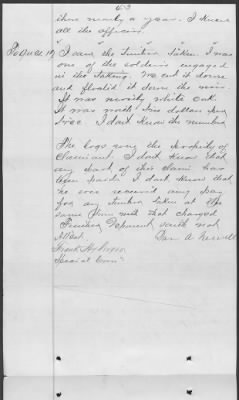 there nearly a year. I knew
all the officers.
"I saw the timber taken. I was
one of the soldiers engaged
in the taking. We cut it down
and floated it down the river.
It was mostly white oak.
It was worth five dollars per
tree. I dont know the number
The logs were the property of
Claimant. I dont know that
any part of this claim has
been paid. I dont know that
he ever received any pay
for any timber taken at the
same time with that charged
Further Deponent saith not
Attest.
Special Com